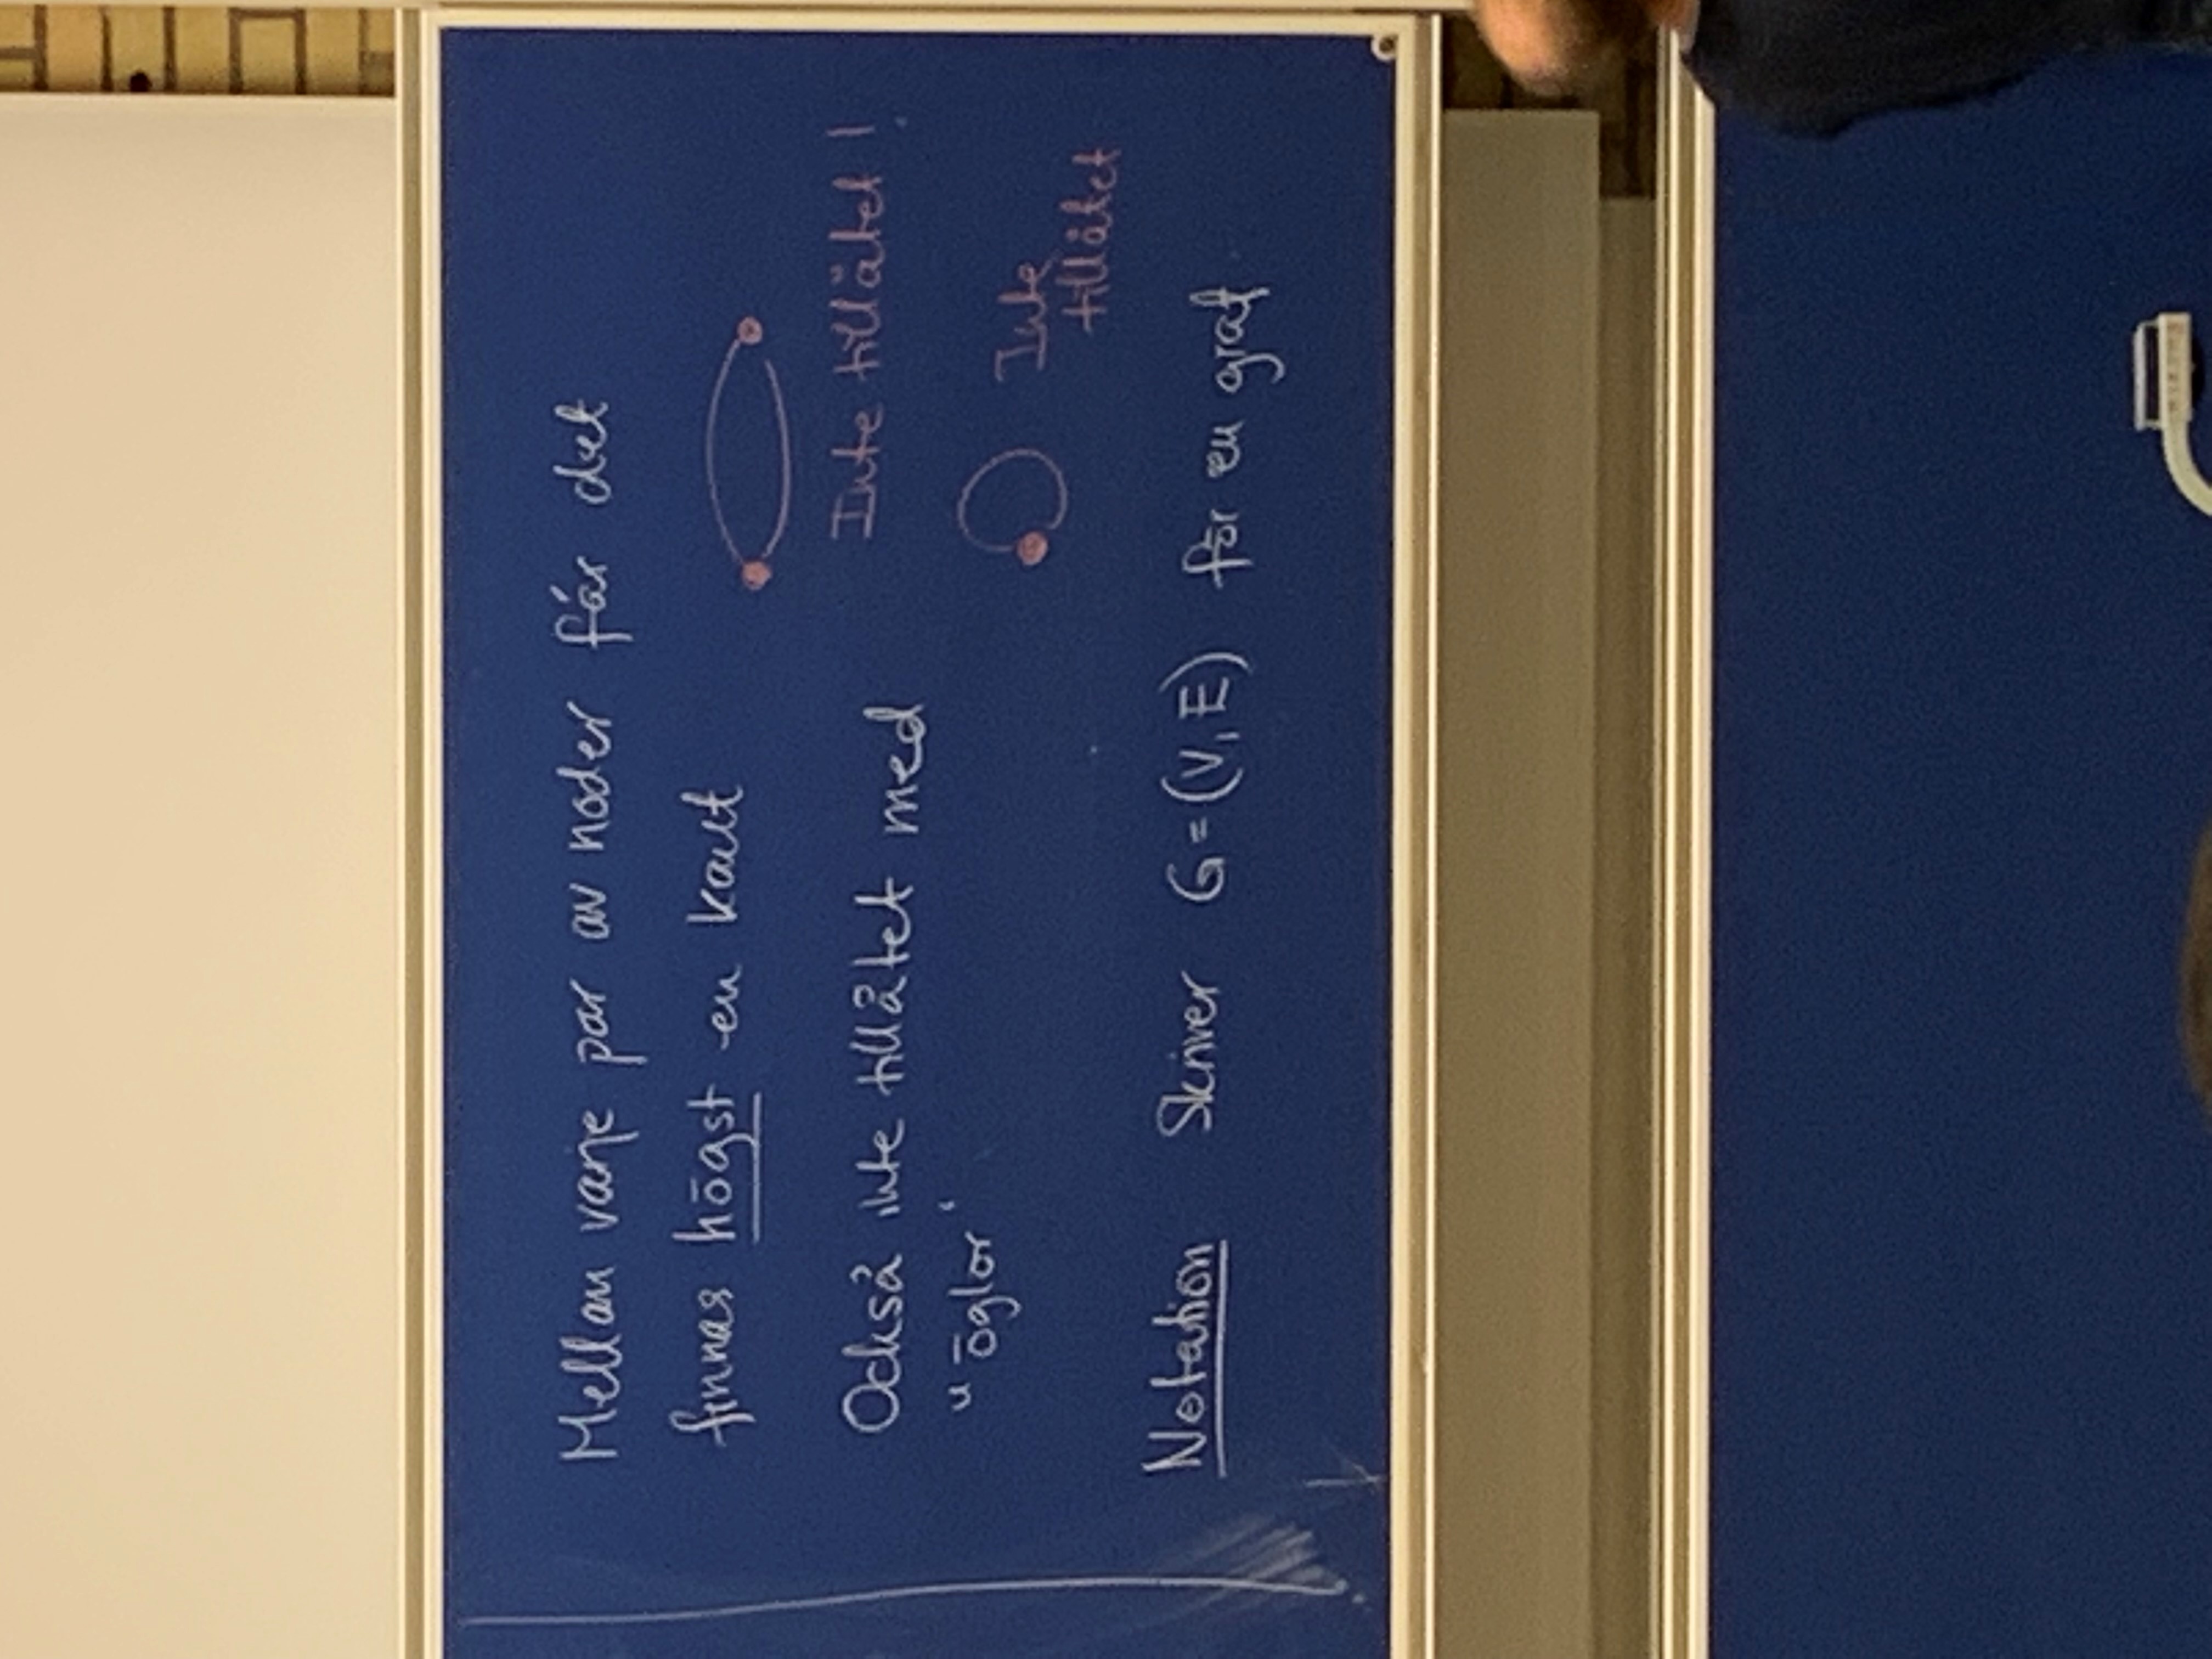 Mellan varje par av noder får det
finnas högst en kant
Inte tillåtet!
Också inte tillåtet med
"öglor"
Inte
tillåtet
Notation Skriver G=(V,E) för en graf.